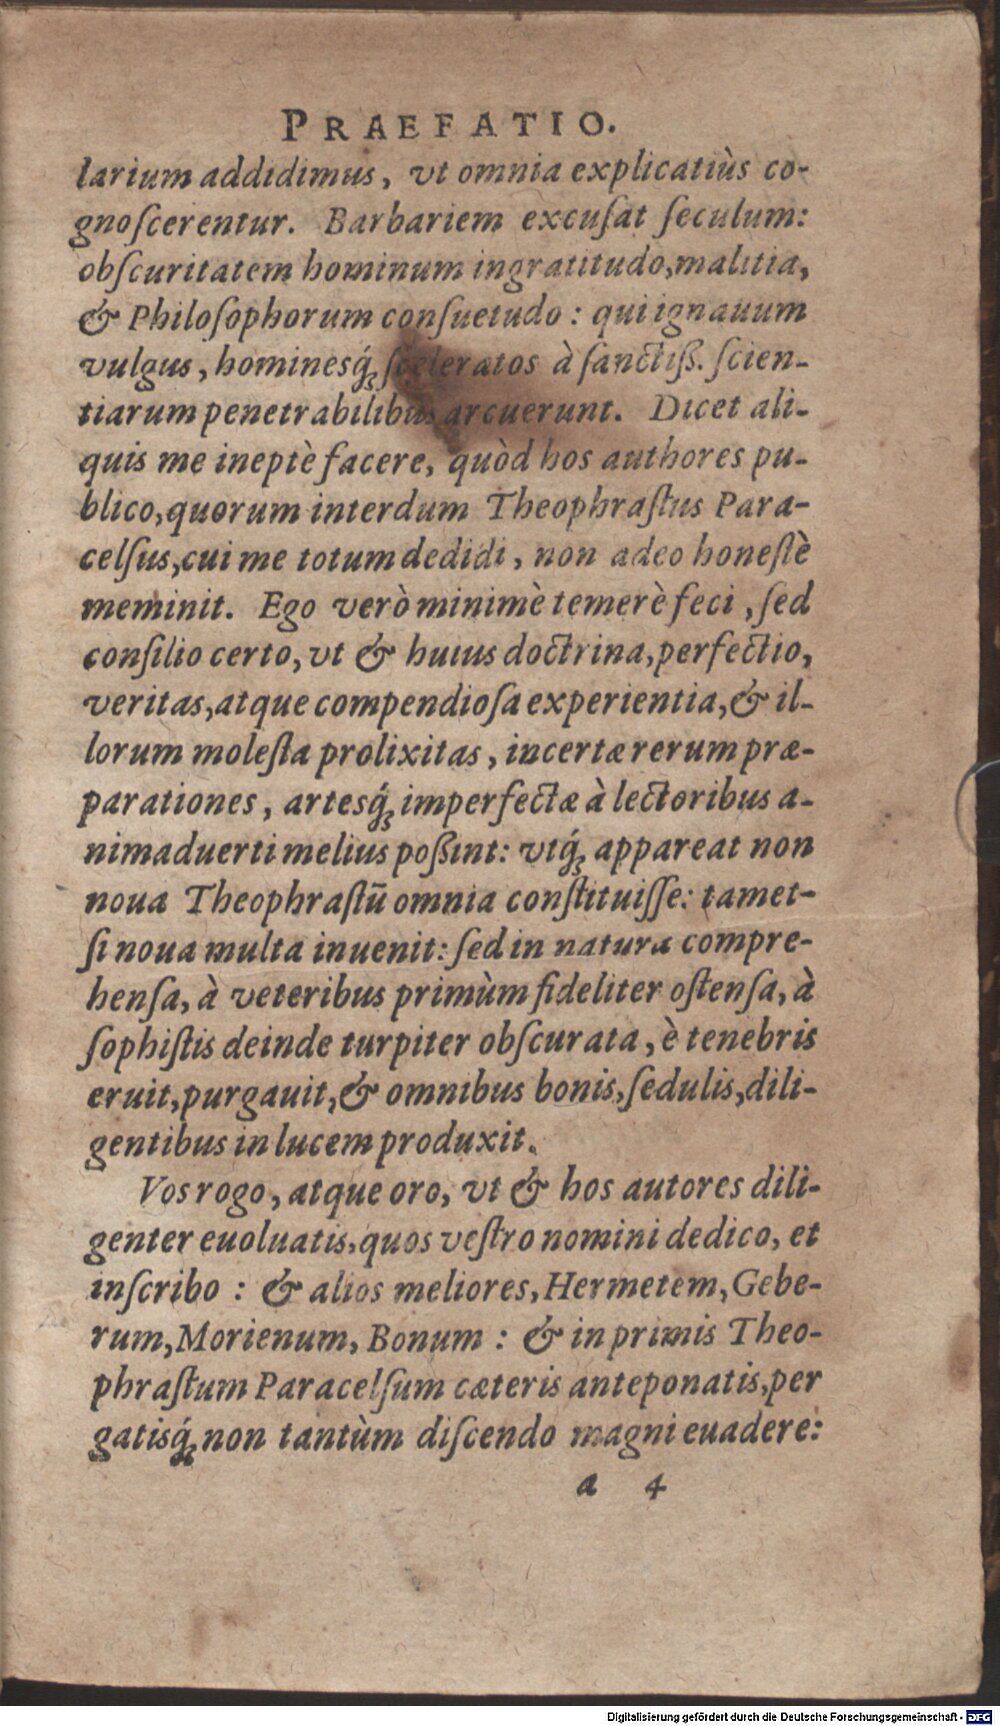 PRAEFATIO.
larium addidimus, vt omnia explicatiùs co-
gnoſcerentur. Barbariem excuſat ſeculum:
obſcuritatem hominum ingratitudo, malitia,
& Philoſophorum conſuetudo : qui ignauum
vulgus, hominesq́ꝫ ſceleratos à ſanctiß. ſcien-
tiarum penetrabilibus arcuerunt. Dicet ali-
quis me ineptè facere, quòd hos authores pu-
blico, quorum interdum Theophraſtus Para-
celſus, cui me totum dedidi, non adeo honeſtè
meminit. Ego verò minimè temerè feci, ſed
conſilio certo, vt & huius doctrina, perfectio,
veritas, atque compendioſa experientia, & il-
lorum moleſta prolixitas, incertæ rerum præ-
parationes, artesq́ꝫ imperfectæ à lectoribus a-
nimaduerti melius poßint: vtq́ꝫ appareat non
noua Theophraſtū omnia conſtituiſſe: tamet-
ſi noua multa inuenit: ſed in natura compre-
henſa, à veteribus primùm fideliter oſtenſa, à
ſophiſtis deinde turpiter obſcurata, è tenebris
eruit, purgauit, & omnibus bonis, ſedulis, dili-
gentibus in lucem produxit.
Vos rogo, atque oro, vt & hos autores dili-
genter euoluatis, quos veſtro nomini dedico, et
inſcribo : & alios meliores, Hermetem, Gebe-
rum, Morienum, Bonum : & in primis Theo-
phraſtum Paracelſum cæteris anteponatis, per
gatisq́ꝫ non tantùm diſcendo magni euadere:
a 4
Digitalisierung gefördert durch die Deutsche Forschungsgemeinschaft - DFG